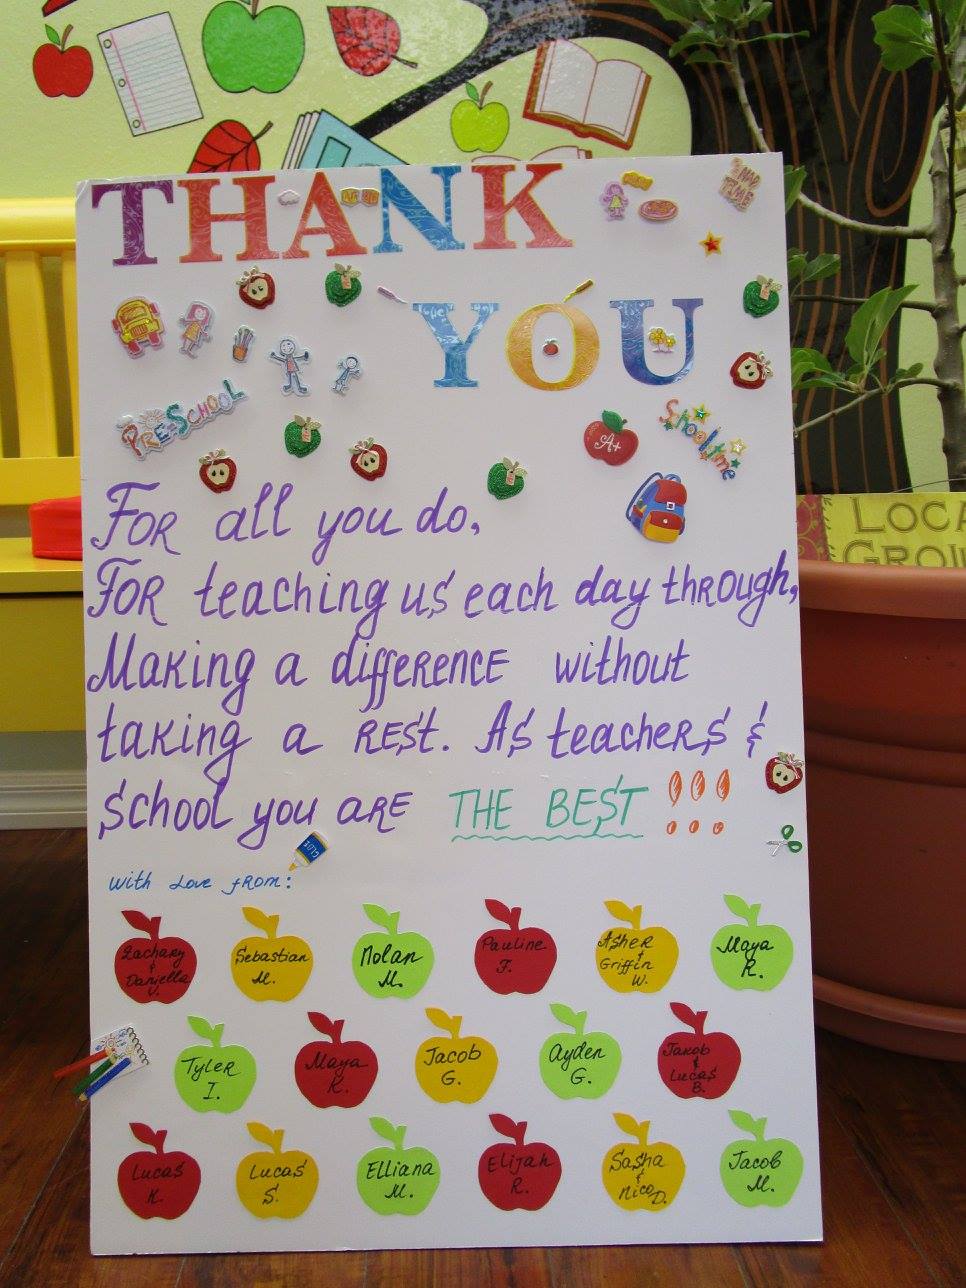 THANK
YOU
PRE-SCHOOL
A+
School time
FOR all you do,
FOR teaching us each day through,
Making a difference without
taking a REST. As teachers &
school you are THE BEST !!!
GLUE
with Love from:
Zachary & Daniella V.
Sebastian M.
Nolan M.
Pauline F.
Asher & Griffin W.
Maya R.
Tyler I.
Maya K.
Jacob G.
Ayden G.
Jakob & Lucas B.
Lucas K.
Lucas S.
Elliana M.
Elijah R.
Sasha & Nico D.
Jacob M.
LOCA
GROW